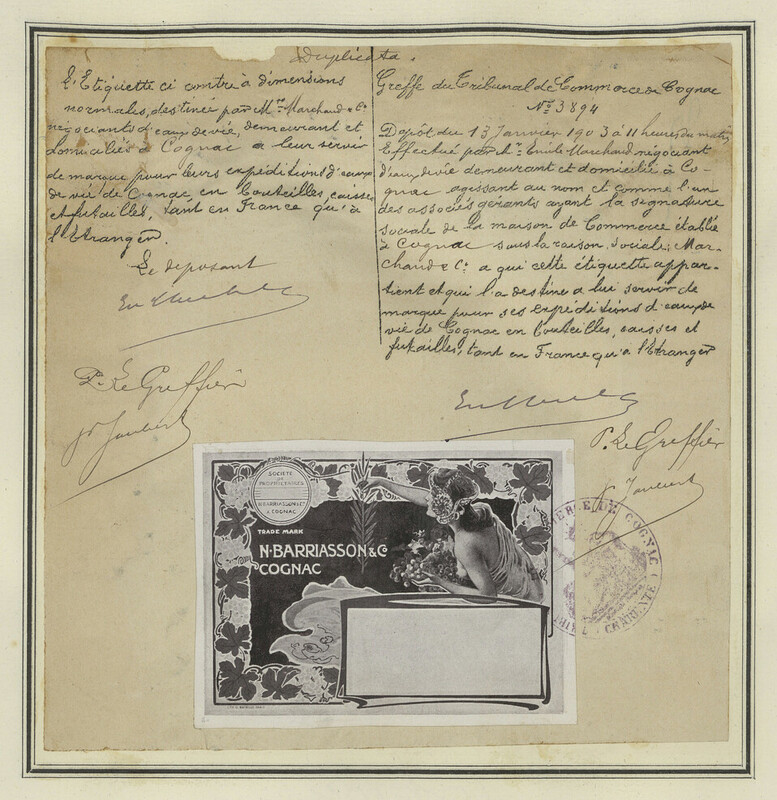 Duplicata.
L'Etiquette ci contre à dimensions
normales, destinée par Mrs Marchand & Cº
négociants d'eaux de vie, demeurant et
domiciliés à Cognac a leur servir
de marque pour leurs expéditions d'eaux
de vie de Cognac en bouteilles, caisses
et futailles, tant en France qu'à
l'Etranger.
Le déposant
P. Le Greffier
Joubert
Greffe du Tribunal de Commerce de Cognac
Nº 3894
Dépôt du 13 Janvier 1903 à 11 heures du matin
Effectué par Mr. Emile Marchand négociant
d'eaux de vie demeurant et domicilié à Co-
gnac agissant au nom et comme l'un
des associés gérants ayant la signature
sociale de la maison de Commerce établie
à Cognac sous la raison sociale: Mar-
chand & Cº. a qui cette étiquette appar-
tient et qui l'a destine a lui servir de
marque pour ses expéditions d'eaux de
vie de Cognac en bouteilles, caisses et
futailles, tant en France qu'à l'Etranger
P. Le Greffier
Joubert
SOCIÉTÉ
DE
PROPRIÉTAIRES
N. BARRIASSON & Cº
COGNAC
TRADE MARK
N. BARRIASSON & Cº
COGNAC
DE COGNAC
CHARENTE